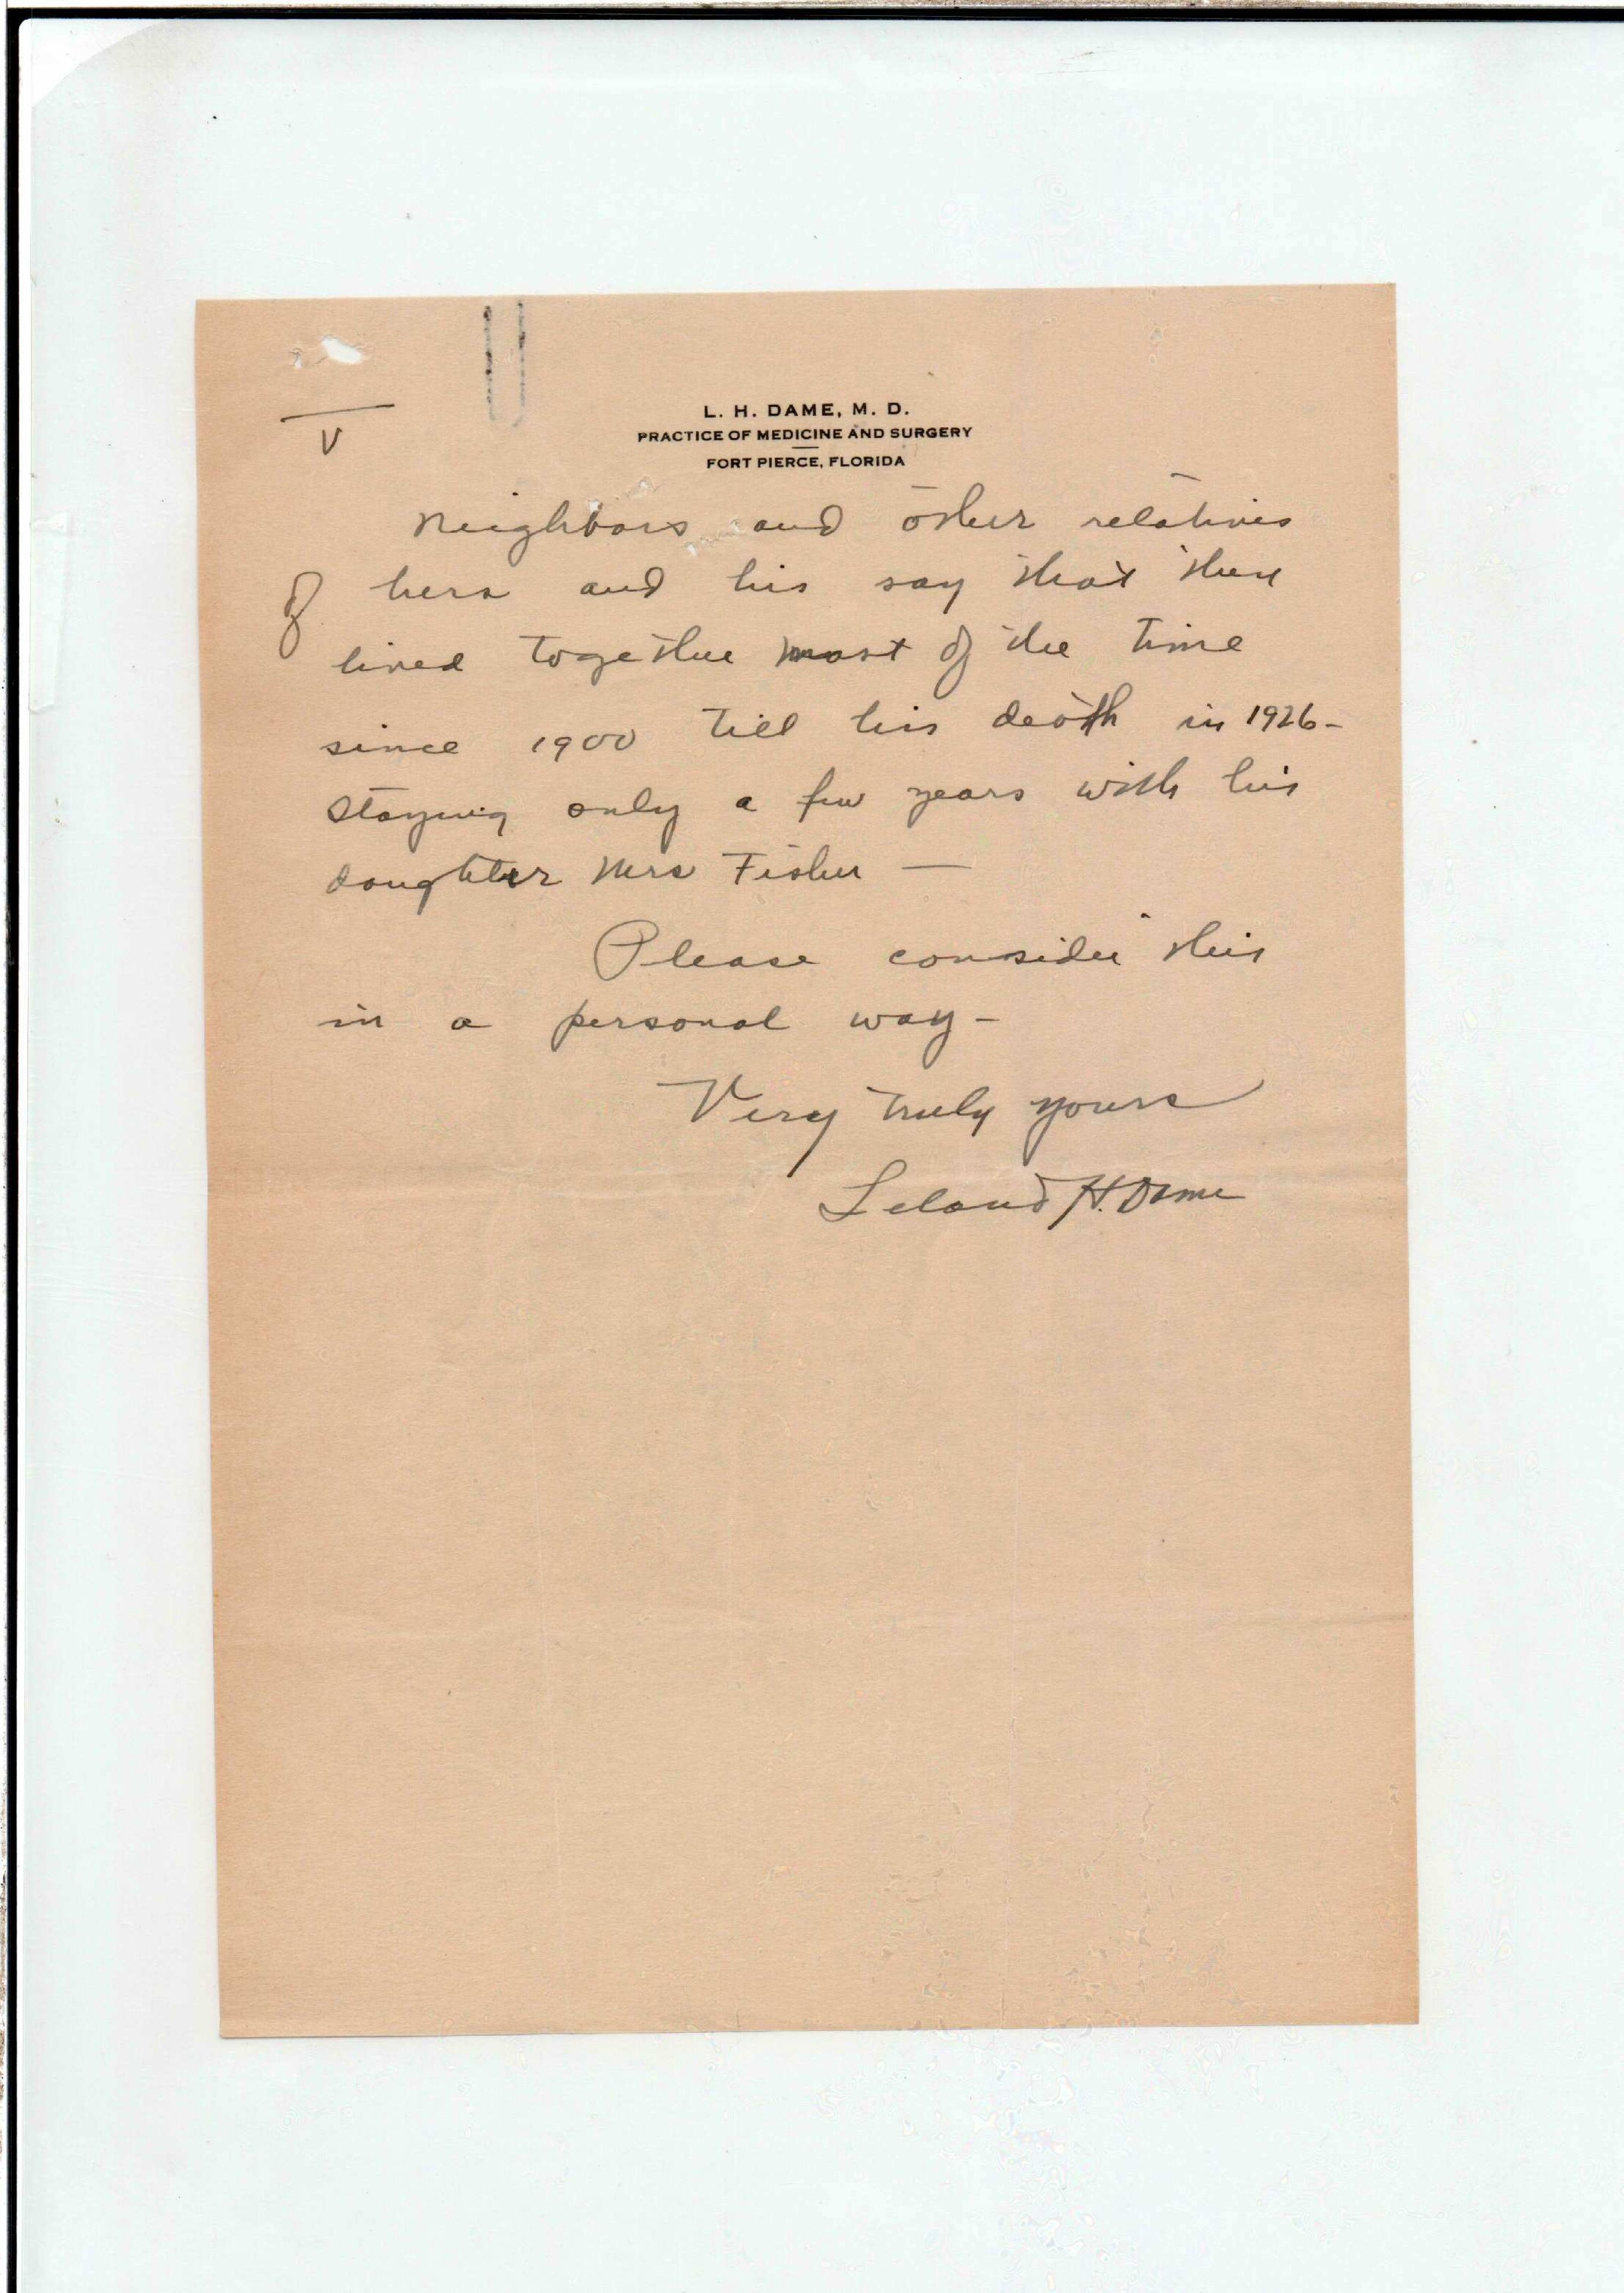 V
L. H. DAME, M. D.
PRACTICE OF MEDICINE AND SURGERY
FORT PIERCE, FLORIDA
Neighbors and other relatives
of hers and his say that they
lived together most of the time
since 1900 till his death in 1926-
staying only a few years with his
daughter Mrs Fisher —
Please consider this
in a personal way-
Very truly yours
Leland H. Dame